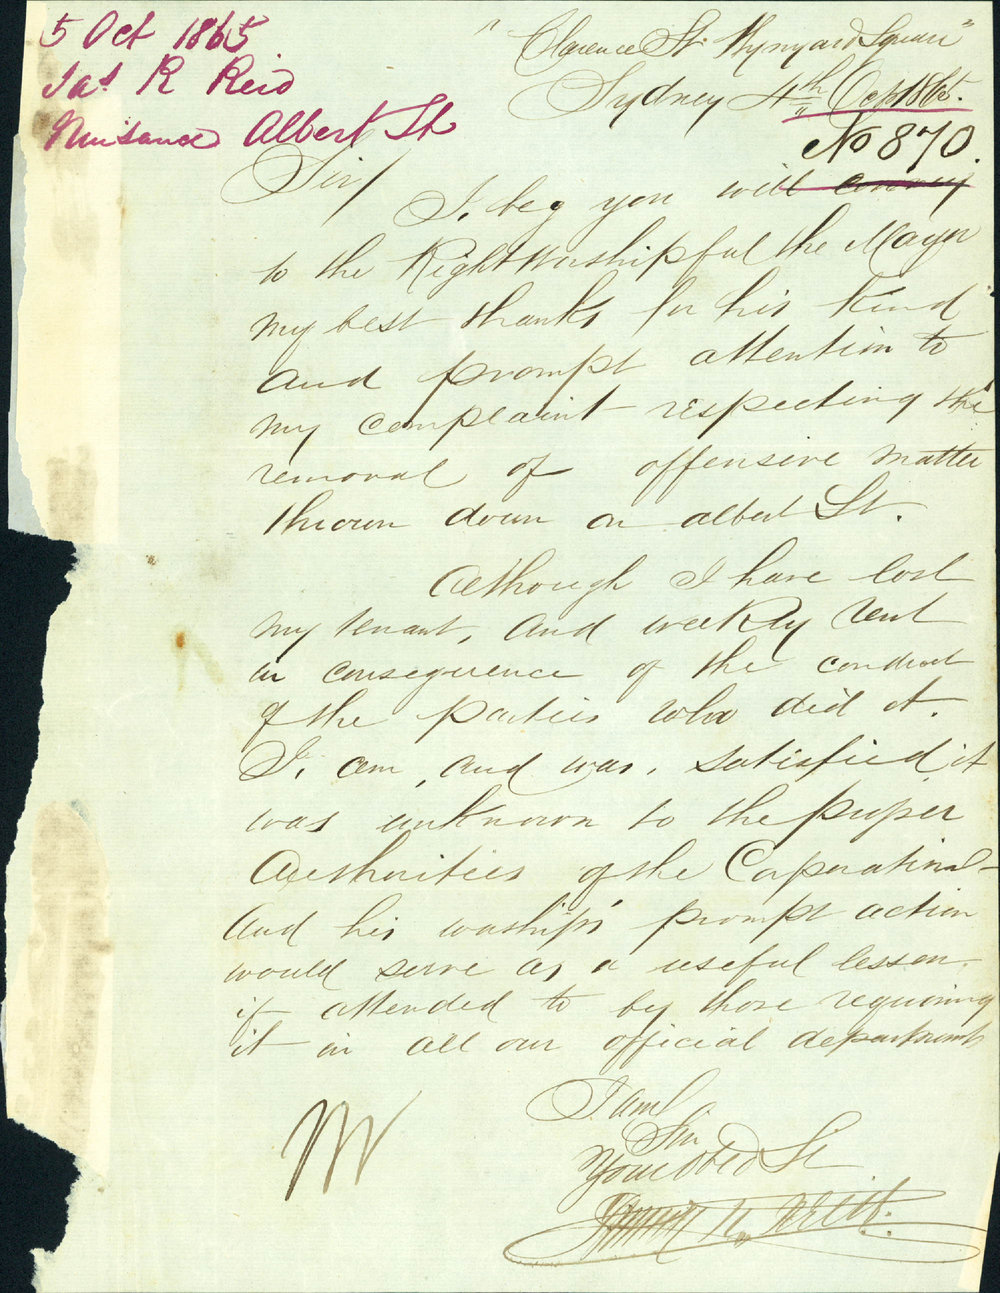 5 Oct 1865
Jas R Reid
Nuisance Albert St
"Clarence St. Wynyard Square"
Sydney 4th Oct 1865.
No 870.
Sir/
I, beg you will convey
to the Right Worshipful the Mayor
my best thanks for his kind
and prompt attention to
my complaint respecting the
removal of offensive matter
thrown down on albert St.
Although I have lost
my tenant, and weekly rent
in consequence of the conduct
of the parties who did it.
I, am, and was, satisfied it
was unknown to the proper
Authorities of the Corporation—
And his worship's prompt action
would serve as a useful lesson,
if attended to by those requiring
it in all our official departments
I am
Sir
Your Obed St
James R. Reid.